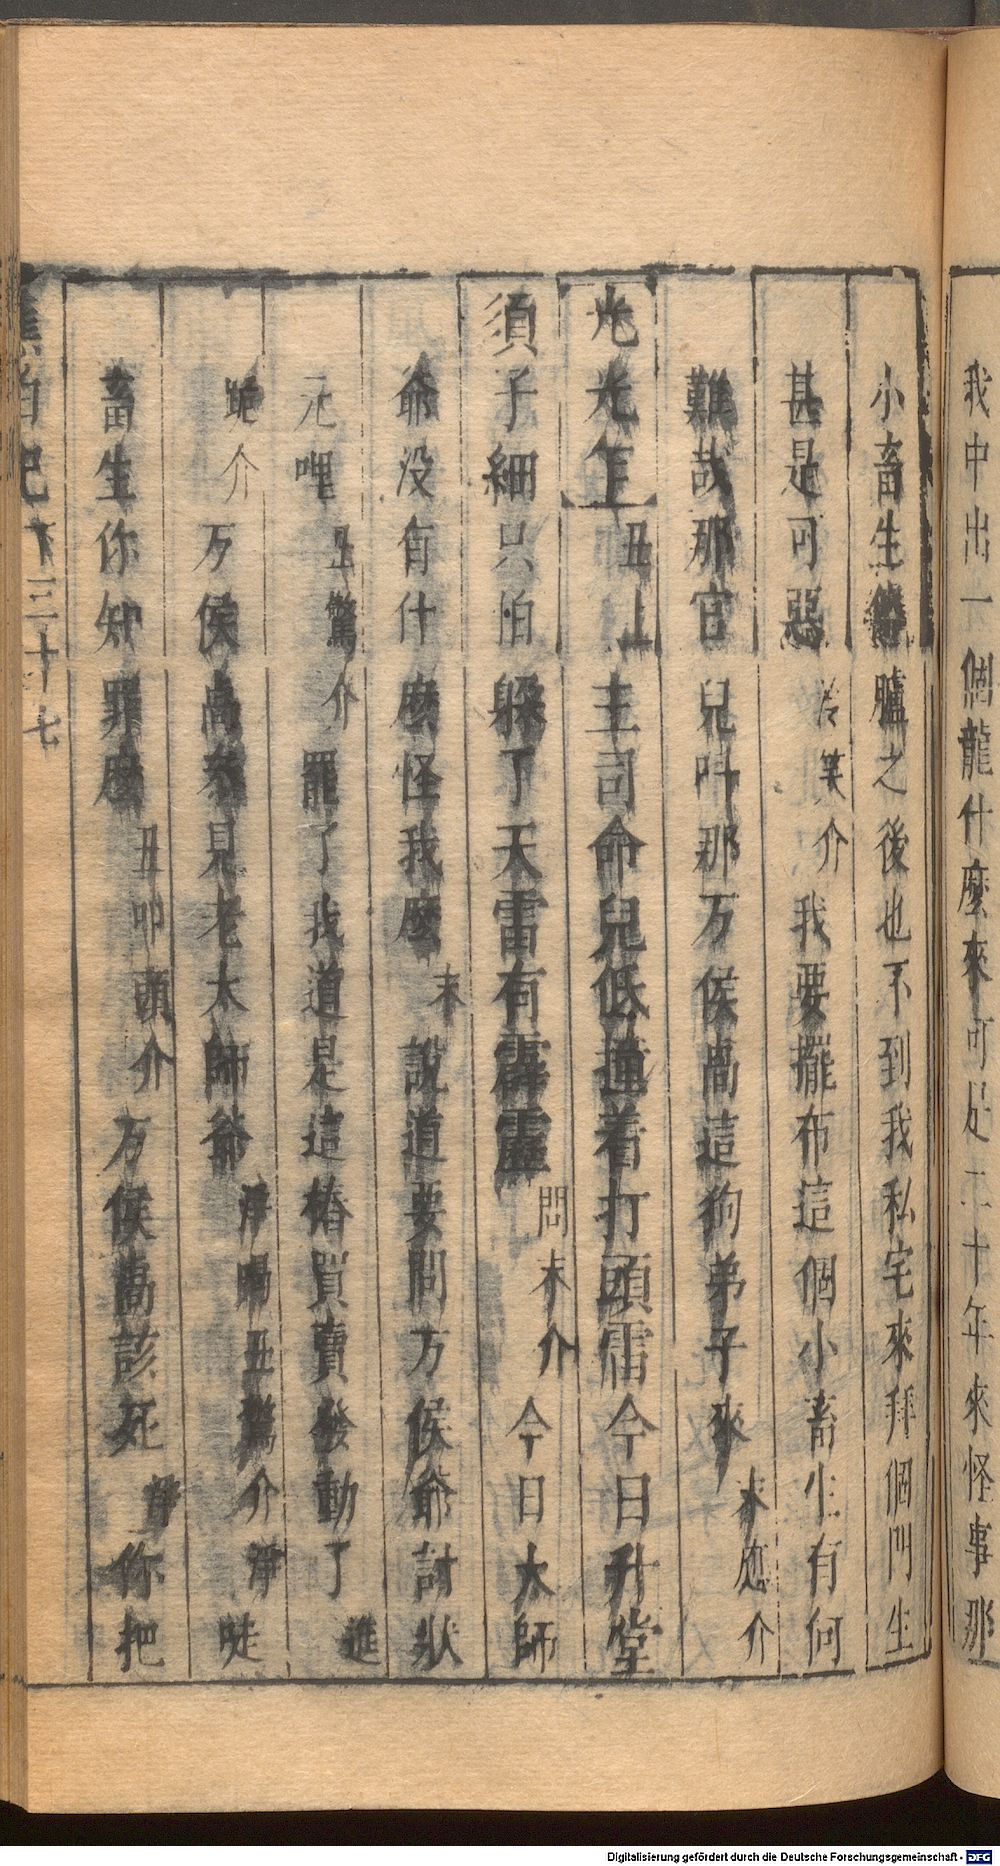 我中出一個龍什麼來可是二十年來怪事那
小畜生傳臚之後也不到我私宅來拜個門生
甚是可惡冷笑介我要擺布這個小畜生有何
難哉那官兒叫那万俟卨這狗弟子來末應介
光光乍丑上主司命兒低撞着打頭雷今日升堂
須子細只怕躱了天雷有霹靂問末介今日太師
爺没有什麽怪我麽末說道要問万俟爺討狀
元哩丑驚介罷了我道是這樁買賣發動了進
跪介万俟卨叅見老太師爺淨喝丑驚介淨唗
畜生你知罪麽丑叩頭介万俟卨該死淨你把
蕉帕記下三十七
Digitalisierung gefördert durch die Deutsche Forschungsgemeinschaft - DFG